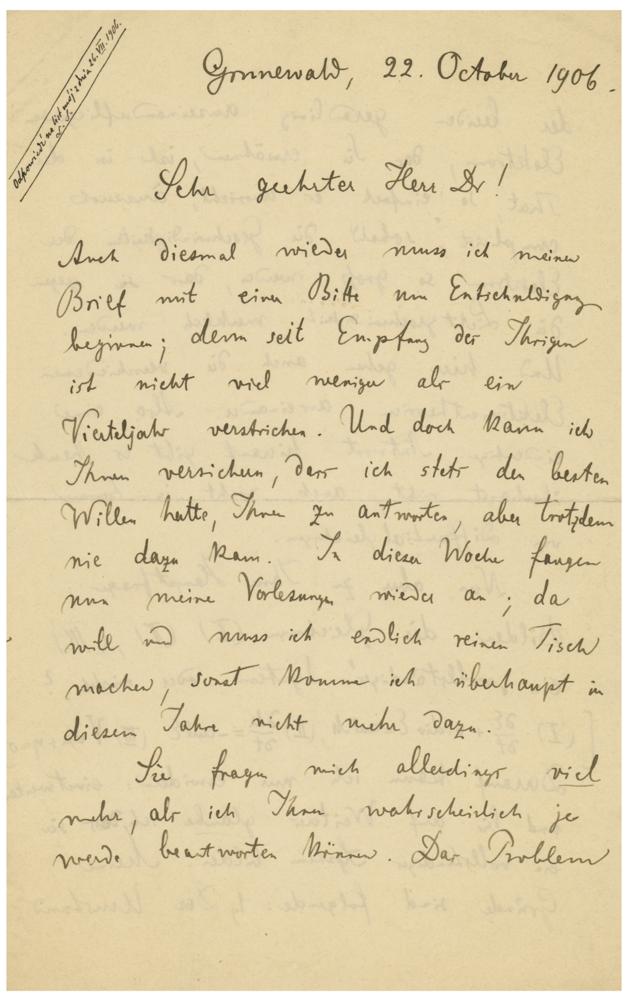 Odpowiedź na list mój z dnia 26.VII.1906.
L. S.
Grunewald, 22. October 1906.
Sehr geehrter Herr Dr!
Auch diesmal wieder muss ich meinen
Brief mit einer Bitte um Entschuldigung
beginnen; denn seit Empfang des Ihrigen
ist nicht viel weniger als ein
Vierteljahr verstrichen. Und doch kann ich
Ihnen versichern, dass ich stets den besten
Willen hatte, Ihnen zu antworten, aber trotzdem
nie dazu kam. In dieser Woche fangen
nun meine Vorlesungen wieder an; da
will und muss ich endlich reinen Tisch
machen, sonst komme ich überhaupt in
diesem Jahre nicht mehr dazu.
Sie fragen mich allerdings viel
mehr, als ich Ihnen wahrscheinlich je
werde beantworten können. Das Problem